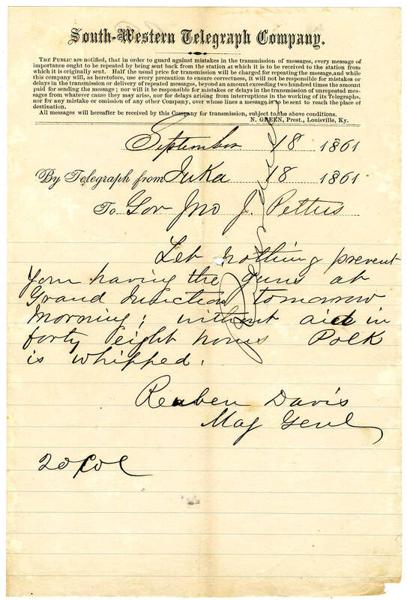 South-Western Telegraph Company.
The Public are notified, that in order to guard against mistakes in the transmission of messages, every message of
importance ought to be repeated by being sent back from the station at which it is to be received to the station from
which it is originally sent. Half the usual price for transmission will be charged for repeating the message, and while
this company will, as heretofore, use every precaution to ensure correctness, it will not be responsible for mistakes or
delays in the transmission or delivery of repeated messages, beyond an amount exceeding two hundred times the amount
paid for sending the message; nor will it be responsible for mistakes or delays in the transmission of unrepeated mes-
sages from whatever cause they may arise, nor for delays arising from interruptions in the working of its Telegraphs,
nor for any mistake or omission of any other Company, over whose lines a message is to be sent to reach the place of
destination.
All messages will hereafter be received by this Company for transmission, subject to the above conditions.
N. GREEN, Prest., Louisville, Ky.
September 18 1861
By Telegraph from Iuka 18 1861
To Gov Jno J. Pettus
Let nothing prevent
your having the guns at
Grand Junction tomorrow
morning; without aid in
forty eight hours Polk
is whipped.
Reuben Davis
Maj Genl
20